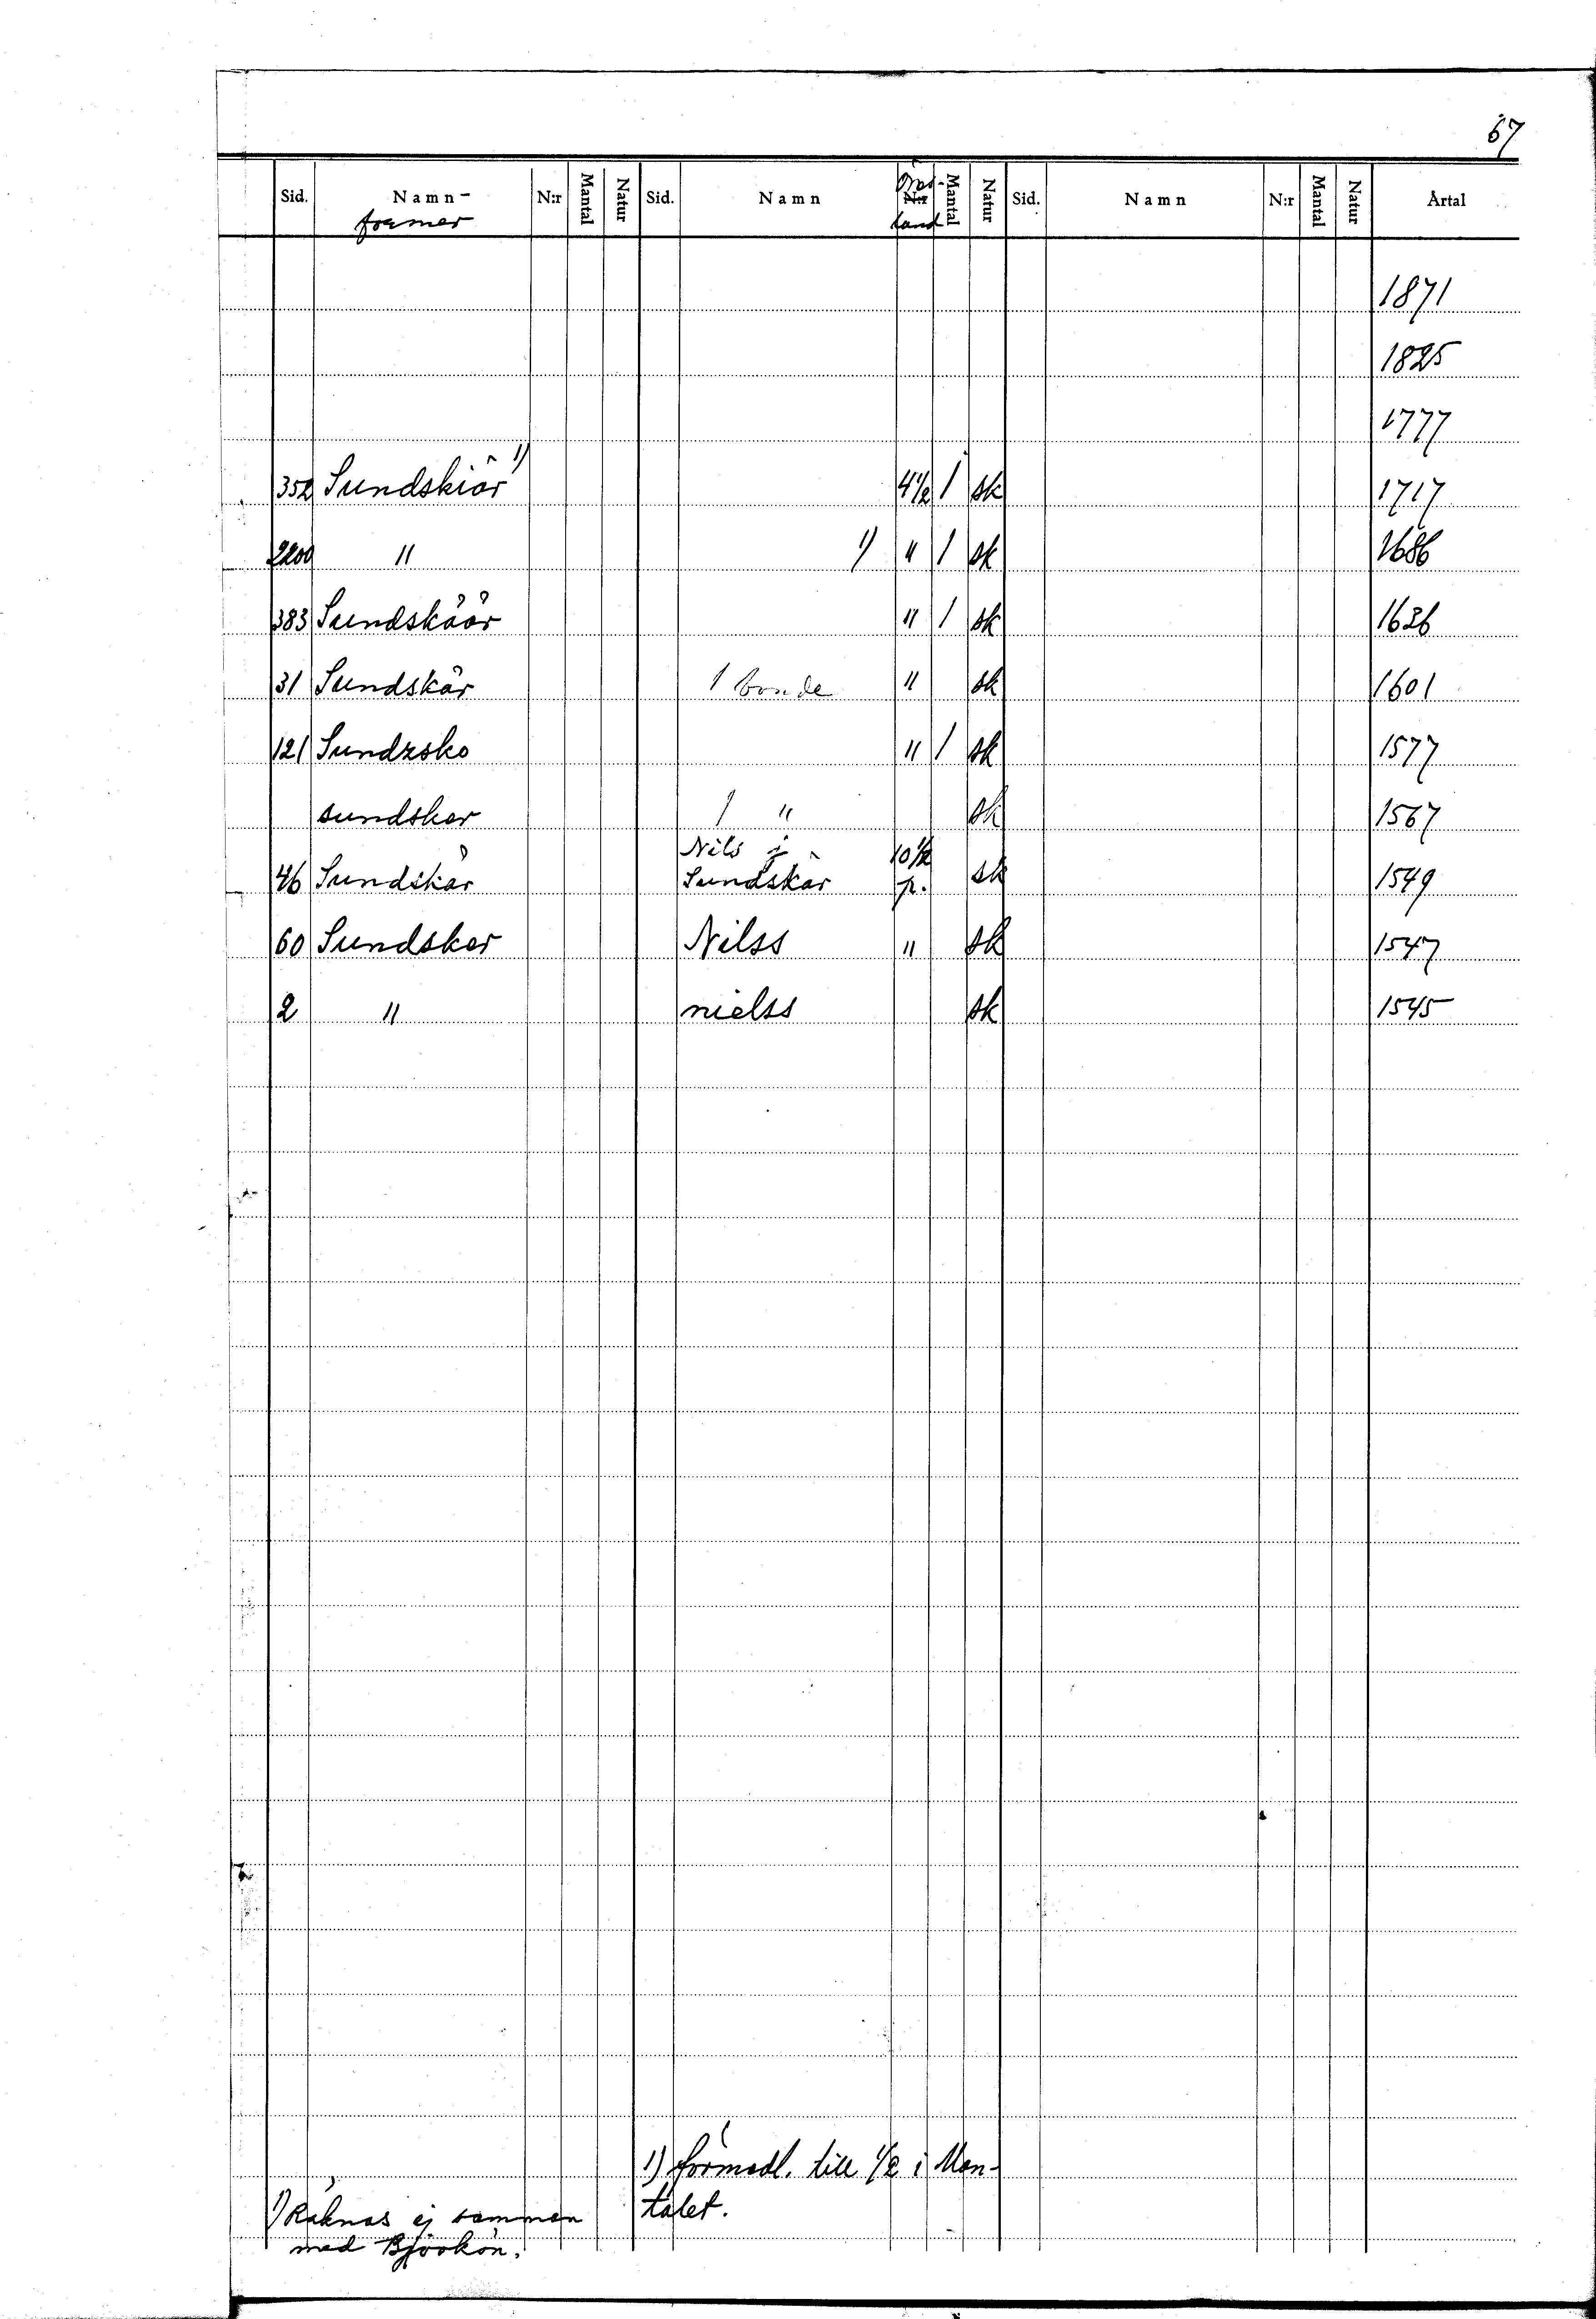 67
Sid. Namn- N:r Mantal Natur Sid. Namn N:r Mantal Natur Sid. Namn N:r Mantal Natur Årtal
former land
1871
1825
1777
352 Sundskiär 1) 4 1/2 1 sk 1717
2200 " 1) " 1 sk 1686
383 Sundskåår " 1 sk 1636
31 Sundskår 1 bonde " sk 1601
121 Sundzsko " 1 sk 1577
sundsker 1 " sk 1567
Nils i 10 1/2
46 Sundskär Sundskär p. sk 1549
60 Sundsker Nilss " sk 1547
2 " nielss sk 1545
1) förmedl. till 1/2 i Man-
talet.
1) Räknas ej samman
med Björkön.